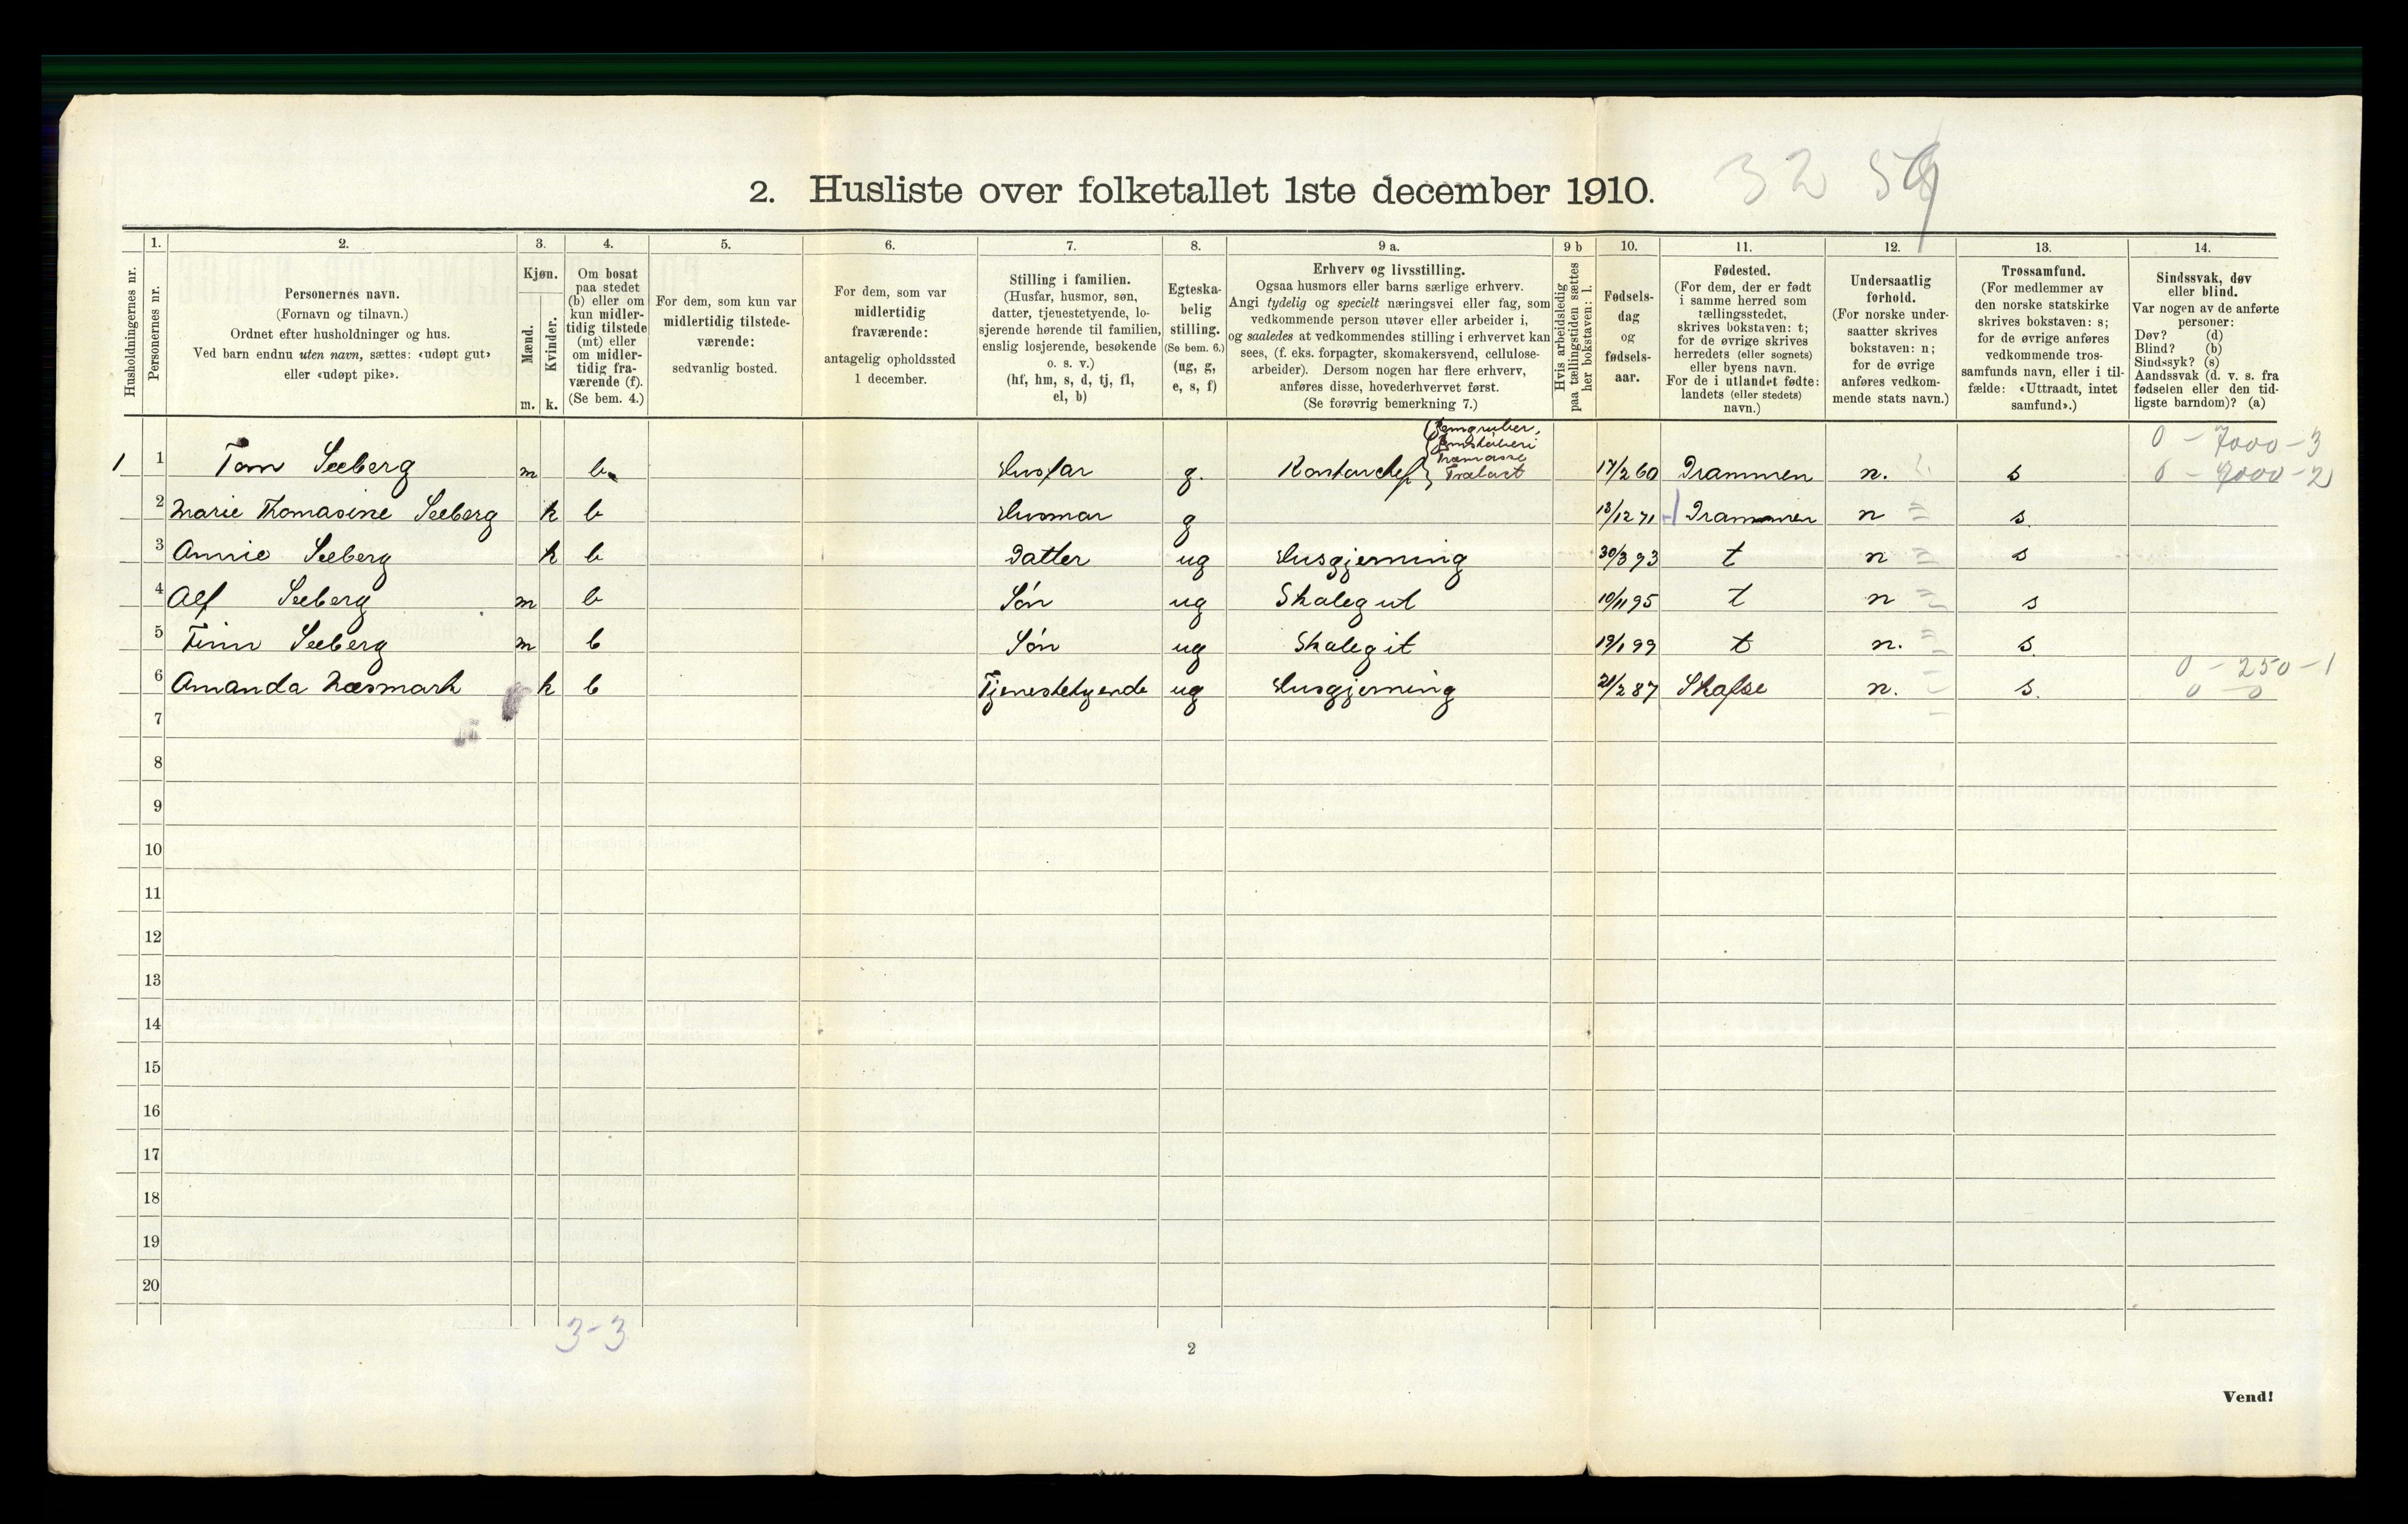 32 59
2. Husliste over folketallet 1ste december 1910.
Husholdningernes nr.
1.
Personernes nr.
2.
Personernes navn.
(Fornavn og tilnavn.)
Ordnet efter husholdninger og hus.
Ved barn endnu uten navn, sættes: «udøpt gut»
eller «udøpt pike».
3.
Kjøn.
Mænd.
Kvinder.
m. k.
4.
Om bosat
paa stedet
(b) eller om
kun midler-
tidig tilstede
(mt) eller
om midler-
tidig fra-
værende (f).
(Se bem. 4.)
5.
For dem, som kun var
midlertidig tilstede-
værende:
sedvanlig bosted.
6.
For dem, som var
midlertidig
fraværende:
antagelig opholdssted
1 december.
7.
Stilling i familien.
(Husfar, husmor, søn,
datter, tjenestetyende, lo-
sjerende hørende til familien,
enslig losjerende, besøkende
o. s. v.)
(hf, hm, s, d, tj, fl,
el, b)
8.
Egteska-
belig
stilling.
(Se bem. 6.)
(ug, g,
e, s, f)
9 a.
Erhverv og livsstilling.
Ogsaa husmors eller barns særlige erhverv.
Angi tydelig og specielt næringsvei eller fag, som
vedkommende person utøver eller arbeider i,
og saaledes at vedkommendes stilling i erhvervet kan
sees, (f. eks. forpagter, skomakersvend, cellulose-
arbeider). Dersom nogen har flere erhverv,
anføres disse, hovederhvervet først.
(Se forøvrig bemerkning 7.)
9 b
Hvis arbeidsledig
paa tællingstiden sættes
her bokstaven: l.
10.
Fødsels-
dag
og
fødsels-
aar.
11.
Fødested.
(For dem, der er født
i samme herred som
tællingsstedet,
skrives bokstaven: t;
for de øvrige skrives
herredets (eller sognets)
eller byens navn.
For de i utlandet fødte:
landets (eller stedets)
navn.)
12.
Undersaatlig
forhold.
(For norske under-
saatter skrives
bokstaven: n;
for de øvrige
anføres vedkom-
mende stats navn.)
13.
Trossamfund.
(For medlemmer av
den norske statskirke
skrives bokstaven: s;
for de øvrige anføres
vedkommende tros-
samfunds navn, eller i til-
fælde: «Uttraadt, intet
samfund».)
14.
Sindssvak, døv
eller blind.
Var nogen av de anførte
personer:
Døv? (d)
Blind? (b)
Sindssyk? (s)
Aandssvak (d. v. s. fra
fødselen eller den tid-
ligste barndom)? (a)
0 - 7000 - 3
1 1 Tom Seeberg m b Husfar g. Kontorchef Træmasse Trælast 17/2 60 Drammen n. s 0 - 7000 - 2
2 Marie Thomasine Seeberg k b Husmor g 13/12 71 Drammen n s
3 Annie Seeberg k b Datter ug Husgjerning 30/3 93 t n s
4 Alf Seeberg m b Søn ug Skolegut 10/11 95 t n s
5 Finn Seeberg m b Søn ug Skolegut 19/1 99 t n. s
0 - 250 - 1
6 Amanda Næsmark k b Tjenestetyende ug Husgjerning 21/2 87 Skafse n. s. 0 - 0
7
8
9
10
11
12
13
14
15
16
17
18
19
20
3-3
2
Vend!